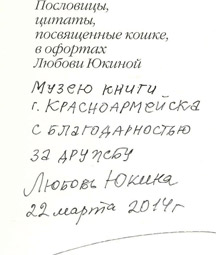 Пословицы,
цитаты,
посвященные кошке,
в офортах
Любови Юкиной
Музею книги
г. Красноармейска
с благодарностью
за дружбу
Любовь Юкина
22 марта 2014г